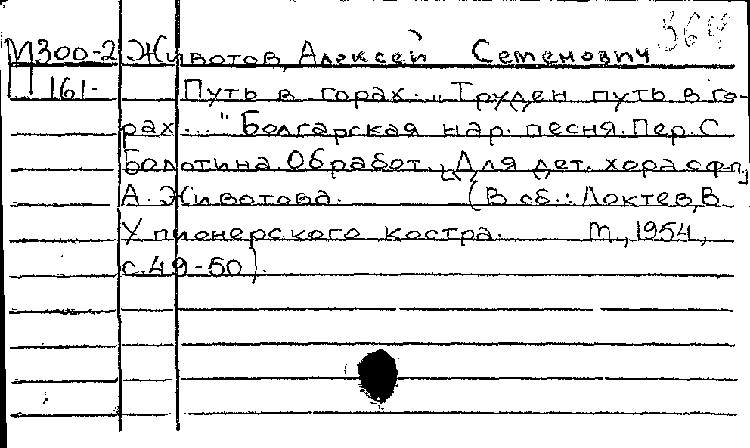 364
М300-2 Животов, Алексей Семенович
161- Путь в горах. „Труден путь в го-
рах..." Болгарская нар. песня. Пер. С
Болотина. Обработ. [Для дет. хора с ф.-п.]
А. Животова. (В сб.: Локтев, В
У пионерского костра. М., 1954,
с. 49-50).